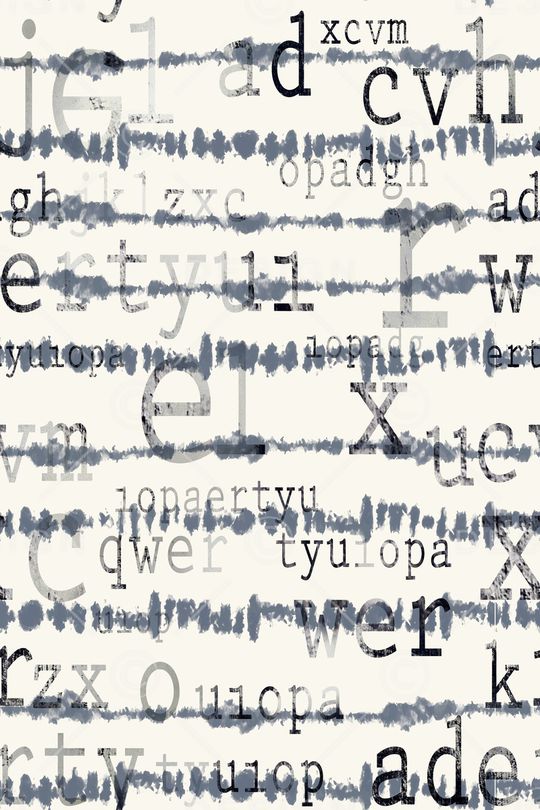 xcvm
jel ad
cvh
opadgh
gh jklzxc ad
r
ertyu11 w
iopadg
yuiopa ert
el x
vm ue
iopaertyu
c qwer tyuiopa x
uiop wer
rzxc o uiopa k
rty tyuiop ade